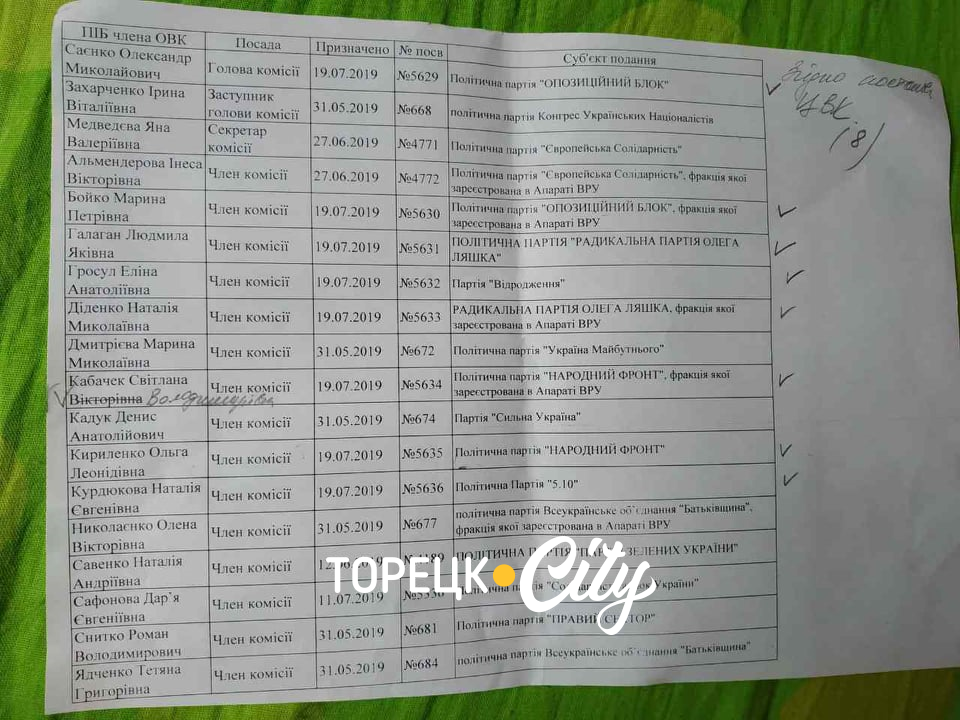 ПІБ члена ОВК Посада Призначено № посв Суб'єкт подання
Саєнко Олександр
Миколайович Голова комісії 19.07.2019 №5629 Політична партія "ОПОЗИЦІЙНИЙ БЛОК"
Згідно
ЦВК.
(8)
Захарченко Ірина
Віталіївна
Заступник
голови комісії 31.05.2019 №668 політична партія Конгрес Українських Націоналістів
Медведєва Яна
Валеріївна
Секретар
комісії 27.06.2019 №4771 Політична партія "Європейська Солідарність"
Альмендерова Інеса
Вікторівна Член комісії 27.06.2019 №4772 Політична партія "Європейська Солідарність", фракція якої
зареєстрована в Апараті ВРУ
Бойко Марина
Петрівна Член комісії 19.07.2019 №5630 Політична партія "ОПОЗИЦІЙНИЙ БЛОК", фракція якої
зареєстрована в Апараті ВРУ
Галаган Людмила
Яківна Член комісії 19.07.2019 №5631 ПОЛІТИЧНА ПАРТІЯ "РАДИКАЛЬНА ПАРТІЯ ОЛЕГА
ЛЯШКА"
Гросул Еліна
Анатоліївна Член комісії 19.07.2019 №5632 Партія "Відродження"
Діденко Наталія
Миколаївна Член комісії 19.07.2019 №5633 РАДИКАЛЬНА ПАРТІЯ ОЛЕГА ЛЯШКА, фракція якої
зареєстрована в Апараті ВРУ
Дмитрієва Марина
Миколаївна Член комісії 31.05.2019 №672 Політична партія "Україна Майбутнього"
Кабачек Світлана
Вікторівна Володимирівна Член комісії 19.07.2019 №5634 Політична партія "НАРОДНИЙ ФРОНТ", фракція якої
зареєстрована в Апараті ВРУ
Кадук Денис
Анатолійович Член комісії 31.05.2019 №674 Партія "Сильна Україна"
Кириленко Ольга
Леонідівна Член комісії 19.07.2019 №5635 Політична партія "НАРОДНИЙ ФРОНТ"
Курдюкова Наталія
Євгенівна Член комісії 19.07.2019 №5636 Політична Партія "5.10"
Николаєнко Олена
Вікторівна Член комісії 31.05.2019 №677 політична партія Всеукраїнське об'єднання "Батьківщина",
фракція якої зареєстрована в Апараті ВРУ
Савенко Наталія
Андріївна Член комісії ПОЛІТИЧНА ПАРТІЯ ЗЕЛЕНИХ УКРАЇНИ"
ТОРЕЦК City
Сафонова Дар'я
Євгеніївна Член комісії 11.07.2019 України"
Снитко Роман
Володимирович Член комісії 31.05.2019 №681 Політична партія "ПРАВИЙ СЕКТОР"
Ядченко Тетяна
Григорівна Член комісії 31.05.2019 №684 політична партія Всеукраїнське об'єднання "Батьківщина"